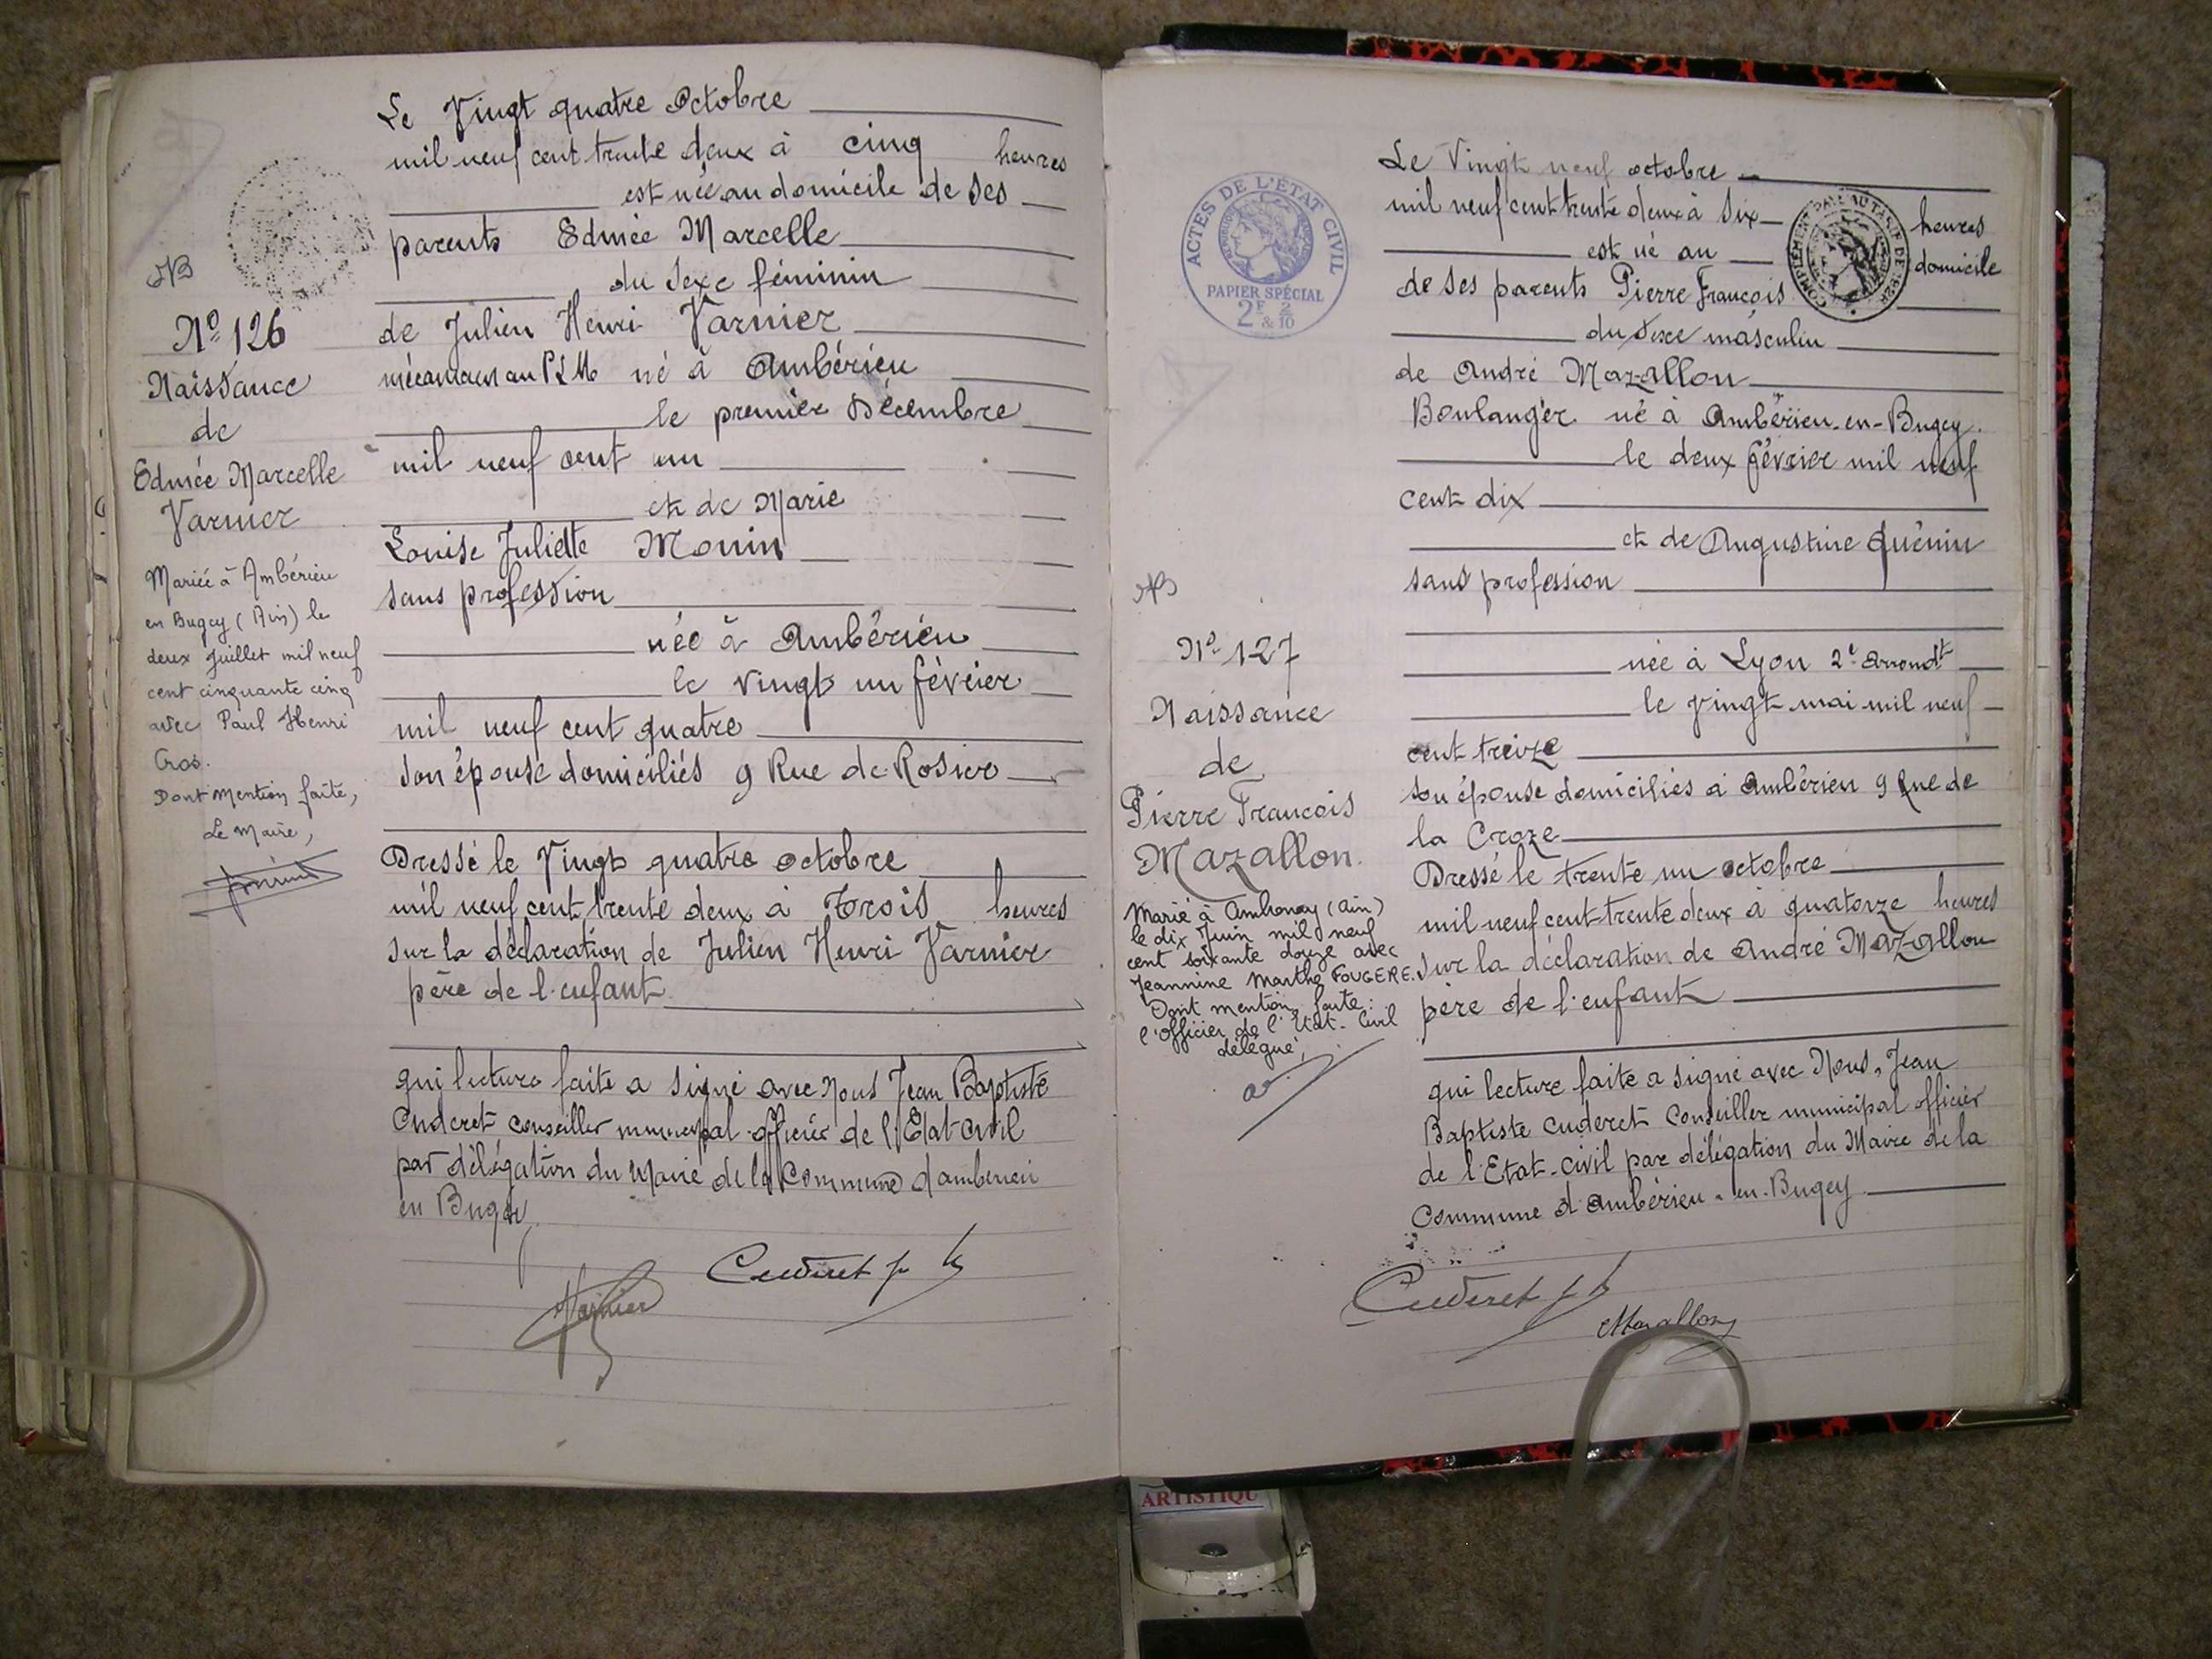 Le Vingt quatre Octobre
mil neuf cent trente deux à cinq heures
est née au domicile de ses
parents Edmée Marcelle
du sexe féminin
de Julien Henri Varnier
mécanicien au PLM né à Ambérieu
le premier Décembre
mil neuf cent un
et de Marie
Louise Juliette Monin
sans profession
née à Ambérieu
le vingt un février
mil neuf cent quatre
son épouse domiciliés 9 Rue de Rosier
Dressé le Vingt quatre octobre
mil neuf cent trente deux à Trois heures
sur la déclaration de Julien Henri Varnier
père de l'enfant
qui lecture faite a signé avec Nous Jean Baptiste
Cuderet conseiller municipal officier de l'Etat Civil
par délégation du Maire de la Commune d'amberieu
en Bugey
Cuderet J B
Varnier
NB
Nº 126
Naissance
de
Edmée Marcelle
Varnier
Mariée à Ambérieu
en Bugey (Ain) le
deux Juillet mil neuf
cent cinquante cinq
avec Paul Henri
Cros.
Dont Mention faite,
Le Maire,
ACTES DE L'ÉTAT CIVIL
PAPIER SPÉCIAL
2F & 2/10
Le Vingt neuf octobre
mil neuf cent trente deux à Six heures
est né au domicile
de ses parents Pierre François
du sexe masculin
de André Mazallon
Boulanger né à Ambérieu-en-Bugey.
le deux février mil neuf
cent dix
et de Augustine Quénin
sans profession
née à Lyon 2e Arrondt
le vingt mai mil neuf
cent treize
son épouse domiciliés à Ambérieu 9 Rue de
la Croze
Dressé le trente un octobre
mil neuf cent trente deux à quatorze heures
sur la déclaration de André Mazallon
père de l'enfant
qui lecture faite a signé avec Nous, Jean
Baptiste Cuderet Conseiller municipal officier
de l'Etat-Civil par délégation du Maire de la
Commune d'Ambérieu-en-Bugey
Cuderet J B
Mazallon
NB
Nº 127
Naissance
de
Pierre François
Mazallon.
Marié à Ambronay (Ain)
le dix Juin mil neuf
cent soixante douze avec
Jeannine Marthe FOUGERE.
Dont mention faite:
l'Officier de l'Etat-Civil
délégué,
ARTISTIQU